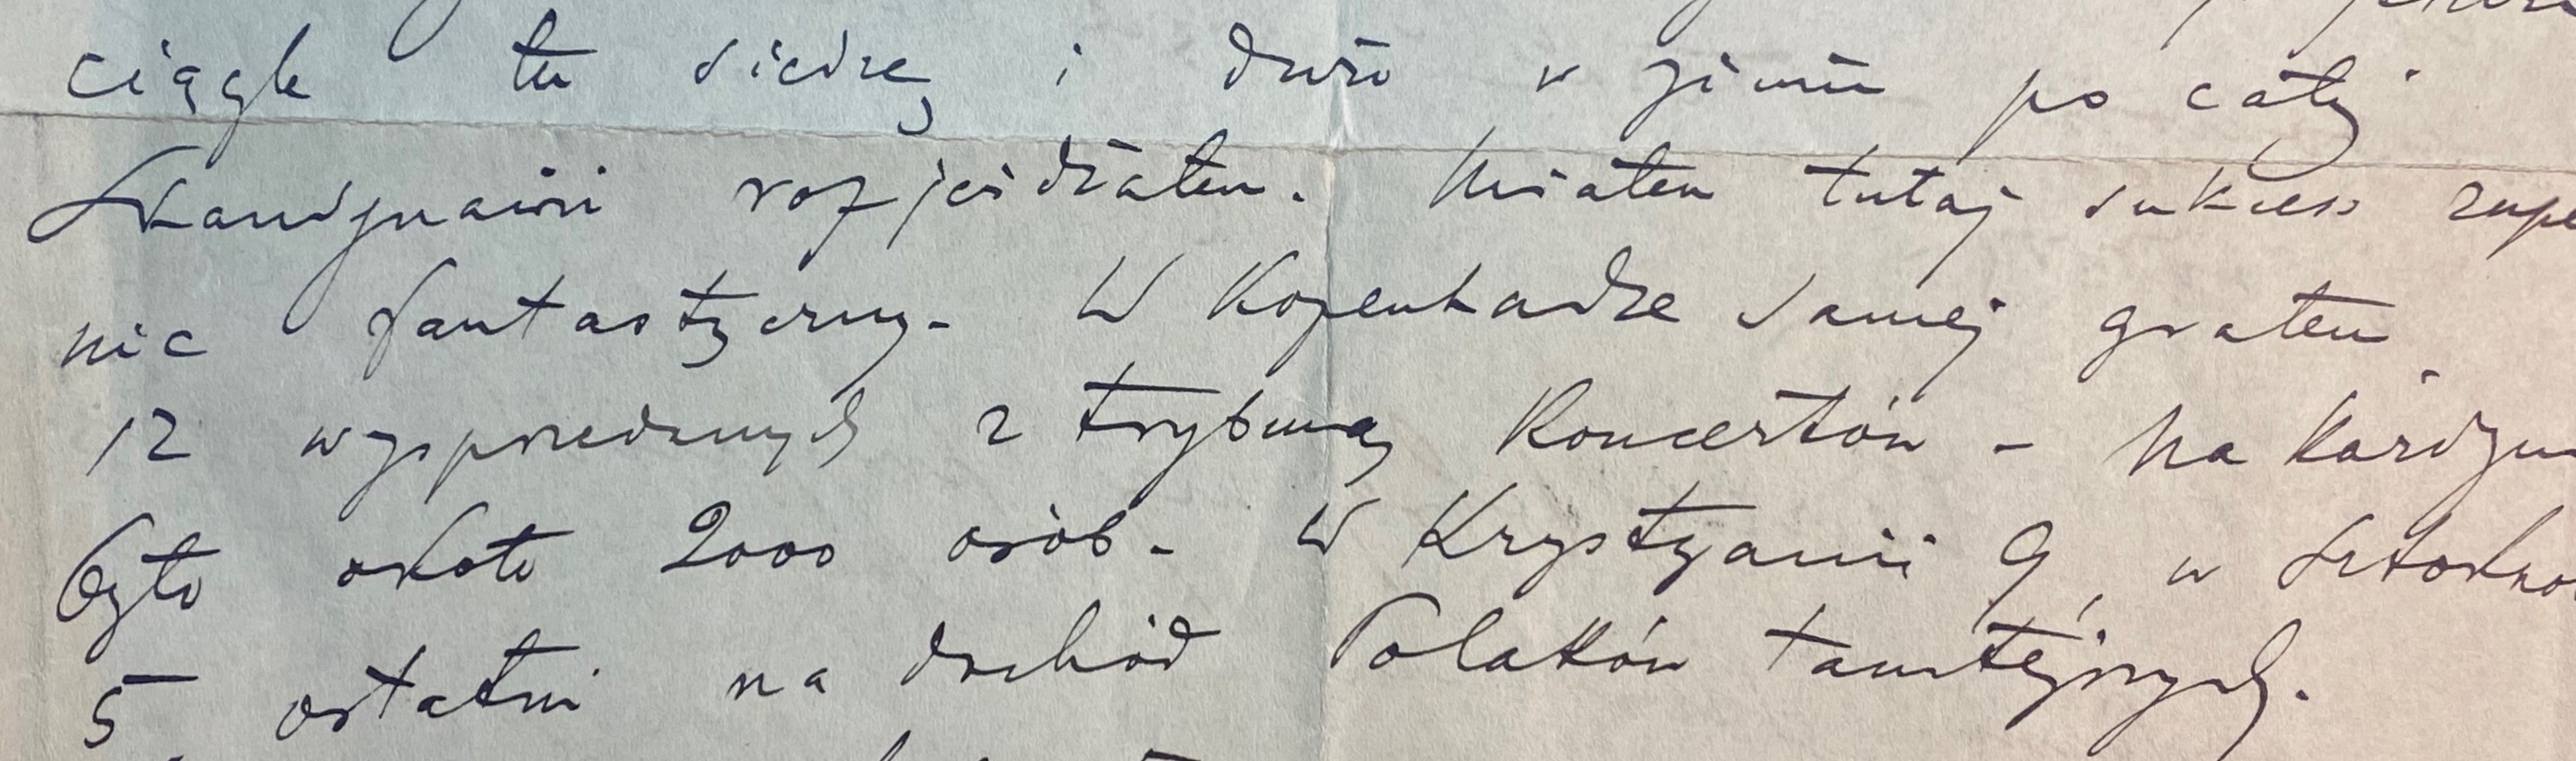 ciągle tu siedzę i dużo w zimie po całej
Skandynawii rozjeżdżałem. Miałem tutaj sukces zupe
nie fantastyczny. W Kopenhadze samej grałem
12 wysprzedanych z trybuną koncertów - na każdym
było około 2000 osób. W Krystyanii 9, w Sztokho
5, ostatni na dochód Polaków tamtejszych.